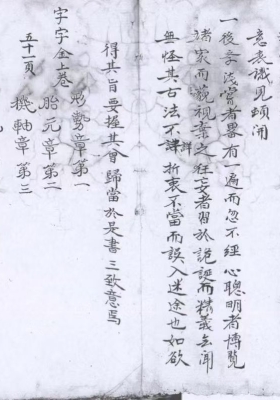 意表識見頓開
一後言法嘗者畧有一遍而忽不經心聰明者博覽
諸家而藐視業之狂妄者習於詭誕而精義無聞
無怪其古法不諱詳折衷不當而誤入迷途也如欲
得其旨要握其會歸當於是書三致意焉
字字金卷
形勢章第一
胎元章第二
五十一頁
機軸章第三